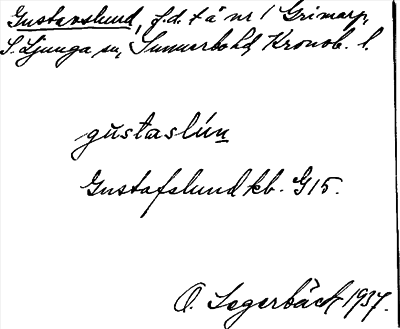 Gustavslund, f.d. t å nr 1 Grimarp,
S. Ljunga sn, Sunnerbo hd, Kronob. l.
gustaslún
Gustafslund kb. G 15.
O. Segerbäck 1937.